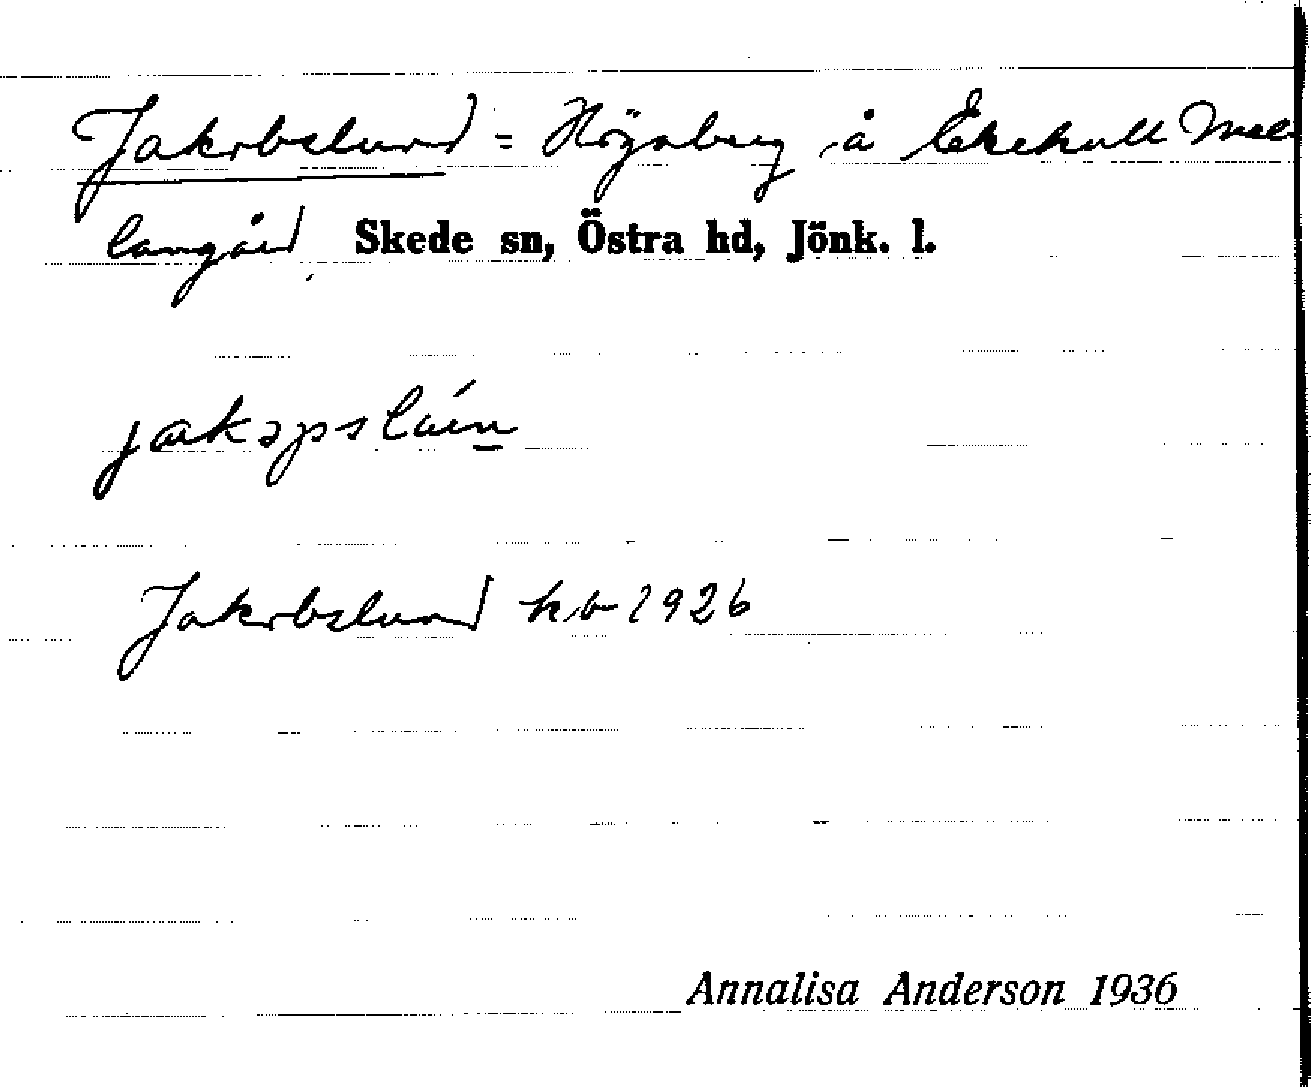 Jakobslund = Högaberg å Ekekull Mel
langård Skede sn, Östra hd, Jönk. l.
Jakobslund kb 1926
Annalisa Anderson 1936